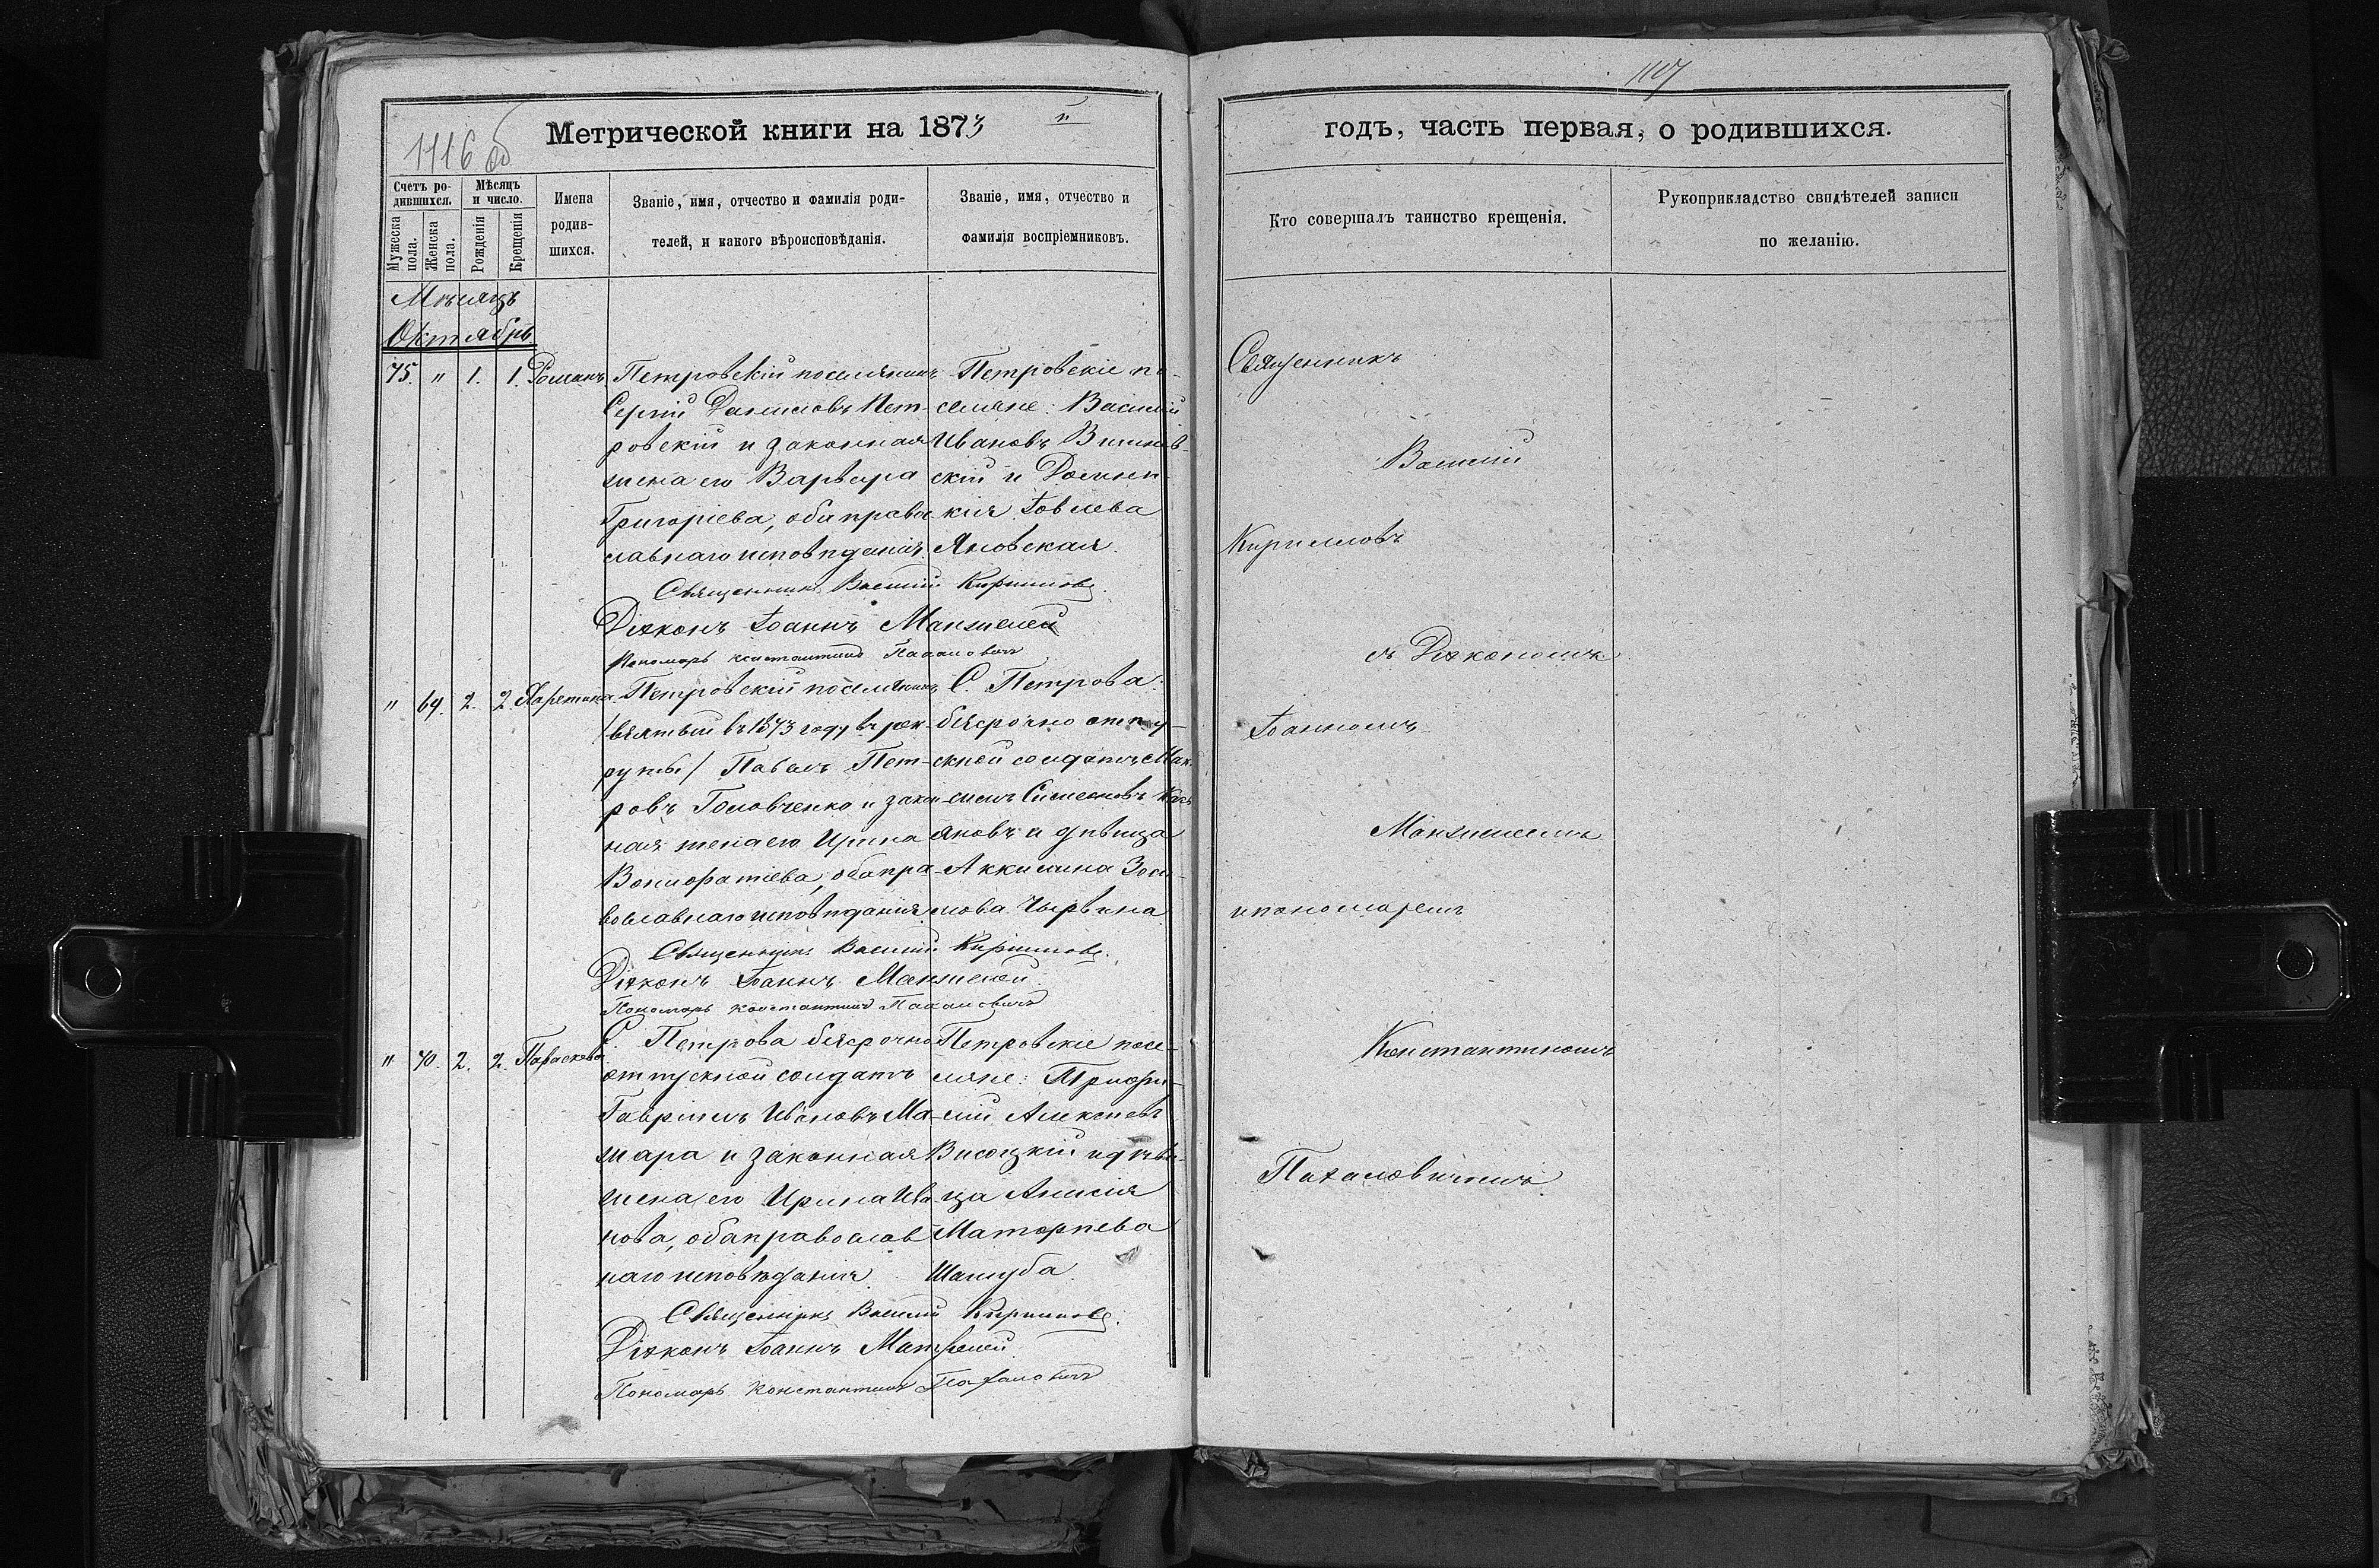 1116 об
Метрической книги на 1873
Счетъ ро-
дившихся.
Мужеска пола.
Женска пола.
Мѣсяцъ
и число.
Рожденія
Крещенія
Имена
родив-
шихся.
Званіе, имя, отчество и фамилія роди-
телей, и какого вѣроисповѣданія.
Званіе, имя, отчество и
фамилія воспріемниковъ.
Мѣсяцъ
Октябрь
75. " 1. 1. Романъ.
Петровскій поселянинъ
Сергій Даниловъ Пет-
ровскій и законная
жена его Варвара
Григоріева, оба право-
славнаго исповѣданія.
Петровскіе по-
селяне: Василій
Ивановъ
скій и Домни-
кія Іовлева
Яновская.
Священникъ Василій Кирилловъ.
Діяконъ Іоаннъ Манжелей
Пономарь Константинъ
" 69. 2. 2. Харитина.
Петровскій поселянинъ
/взятый въ 1873 году въ рек-
руты/ Павелъ Пет-
ровъ Головченко и закон-
ная жена его Ирина
Вонифатіева, оба пра-
вославнаго исповѣданія
С. Петрова:
безсрочно отпу-
скной солдатъ Мак-
симъ Симеоновъ
яновъ и дѣвица
Аккилина Зоси-
мова
Священникъ Василій Кирилловъ.
Діяконъ Іоаннъ Манжелей.
Пономарь Константинъ
" 70. 2. 2. Параскева
С. Петрова безсрочно
отпускной солдатъ
Гавріилъ Ивановъ Ма-
жара и законная
жена его Ирина Ива-
нова, оба православ-
наго исповѣданія.
Петровскіе посе-
ляне: Трифи-
лій Алексіевъ
Висоцкій и дѣви-
ца Анисія
Маторпева
Шашуба.
Священникъ Василій Кирилловъ.
Діяконъ Іоаннъ Манжелей.
Пономарь Константинъ
1117
годъ, часть первая, о родившихся.
Кто совершалъ таинство крещенія.
Рукоприкладство свидѣтелей записи
по желанію.
Священникъ
Василій
Кирилловъ
съ Діякономъ
Іоанномъ
Манжелеемъ
и пономаремъ
Константиномъ